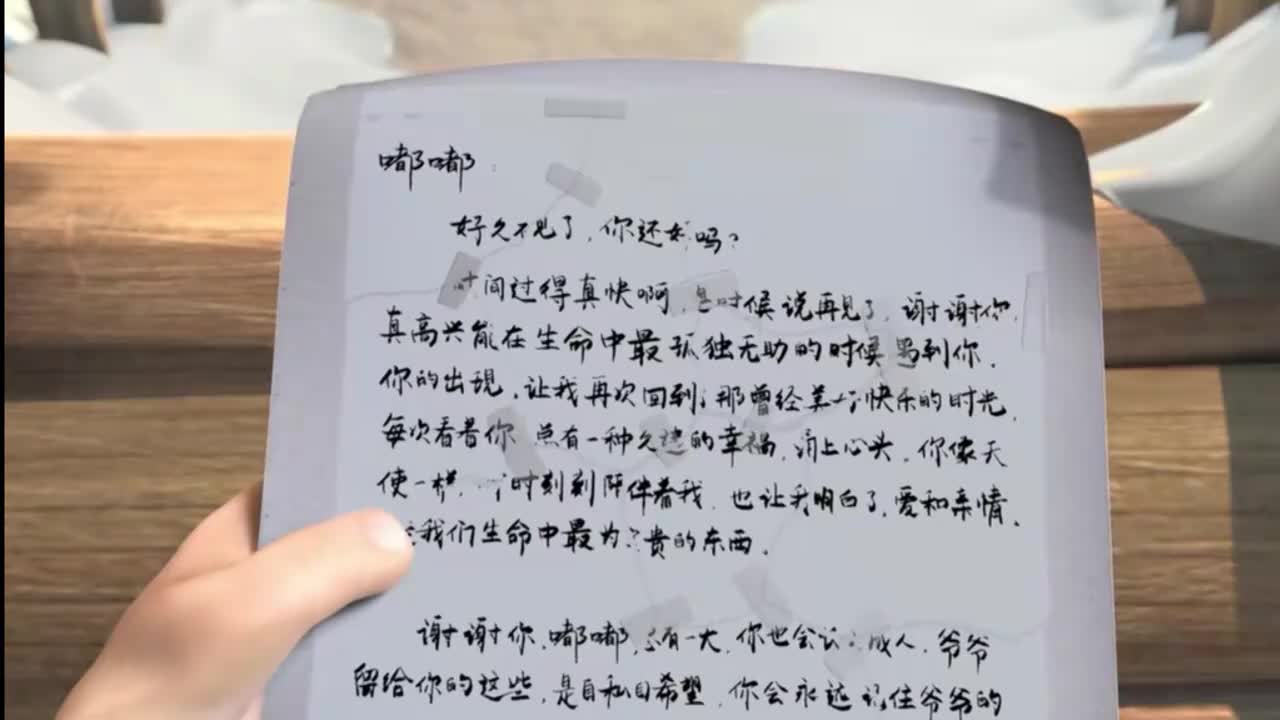 嘟嘟：
好久不见了，你还好吗？
时间过得真快啊，是时候说再见了，谢谢你，
真高兴能在生命中最孤独无助的时候遇到你．
你的出现，让我再次回到 那曾经美好快乐的时光，
每次看着你 总有一种久违的幸福，涌上心头．你像天
使一样， 时时刻刻陪伴着我，也让我明白了，爱和亲情，
我们生命中最为 贵的东西．
谢谢你，嘟嘟，总有一天，你也会 成人，爷爷
留给你的这些，是自私且希望，你会永远记住爷爷的